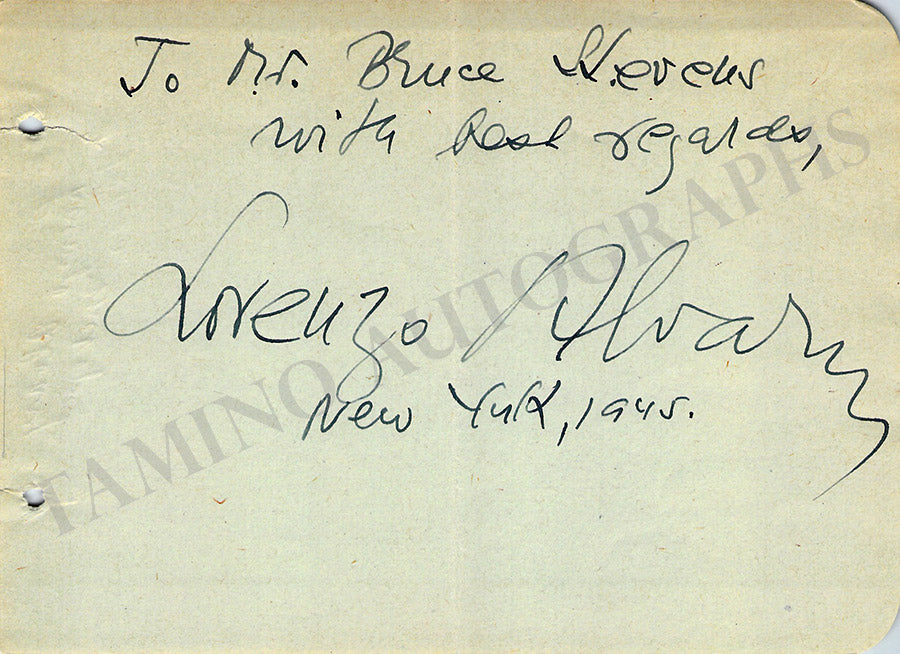 To Mr. Bruce Stevens
with best regards,
Lorenzo Alvary
New York, 1945.
TAMINO AUTOGRAPHS